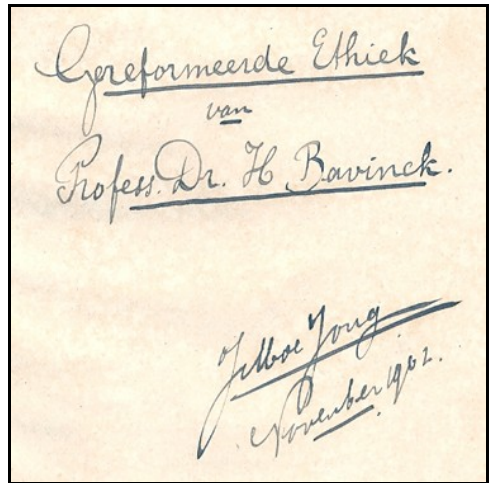 Gereformeerde Ethiek
van
Profess. Dr. H Bavinck.
Jong
November 1902.